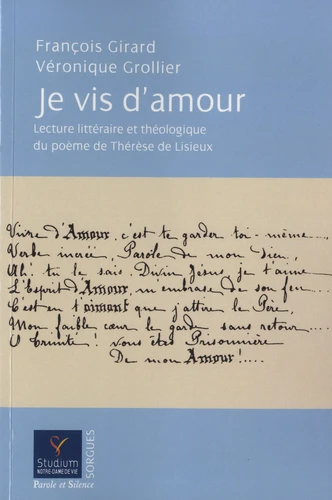 François Girard
Véronique Grollier
Je vis d'amour
Lecture littéraire et théologique
du poème de Thérèse de Lisieux
Vivre d'Amour, c'est te garder toi-même....
Verbe incréé, Parole de mon Dieu,
Ah! tu le sais, Divin Jésus, je t'aime
L'Esprit d'Amour, m'embrase de son feu....
C'est en t'aimant que j'attire le Père,
Mon faible cœur le garde sans retour....
O Trinité! vous êtes Prisonnière
De mon Amour!....
Studium
NOTRE-DAME DE VIE
Parole et Silence
SORGUES